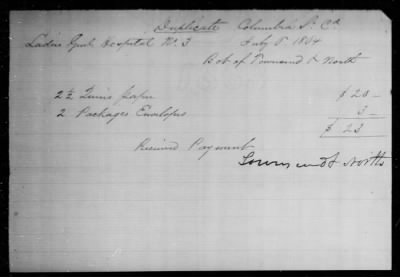 Duplicate Columbia S. Ca
Ladies Genl. Hospital No. 3 July 8 1864
Bot of Townsend & North
2 ½ Quires paper $ 20 —
2 Packages Envelops 3 —
$ 23
Received Payment
Townsend & North